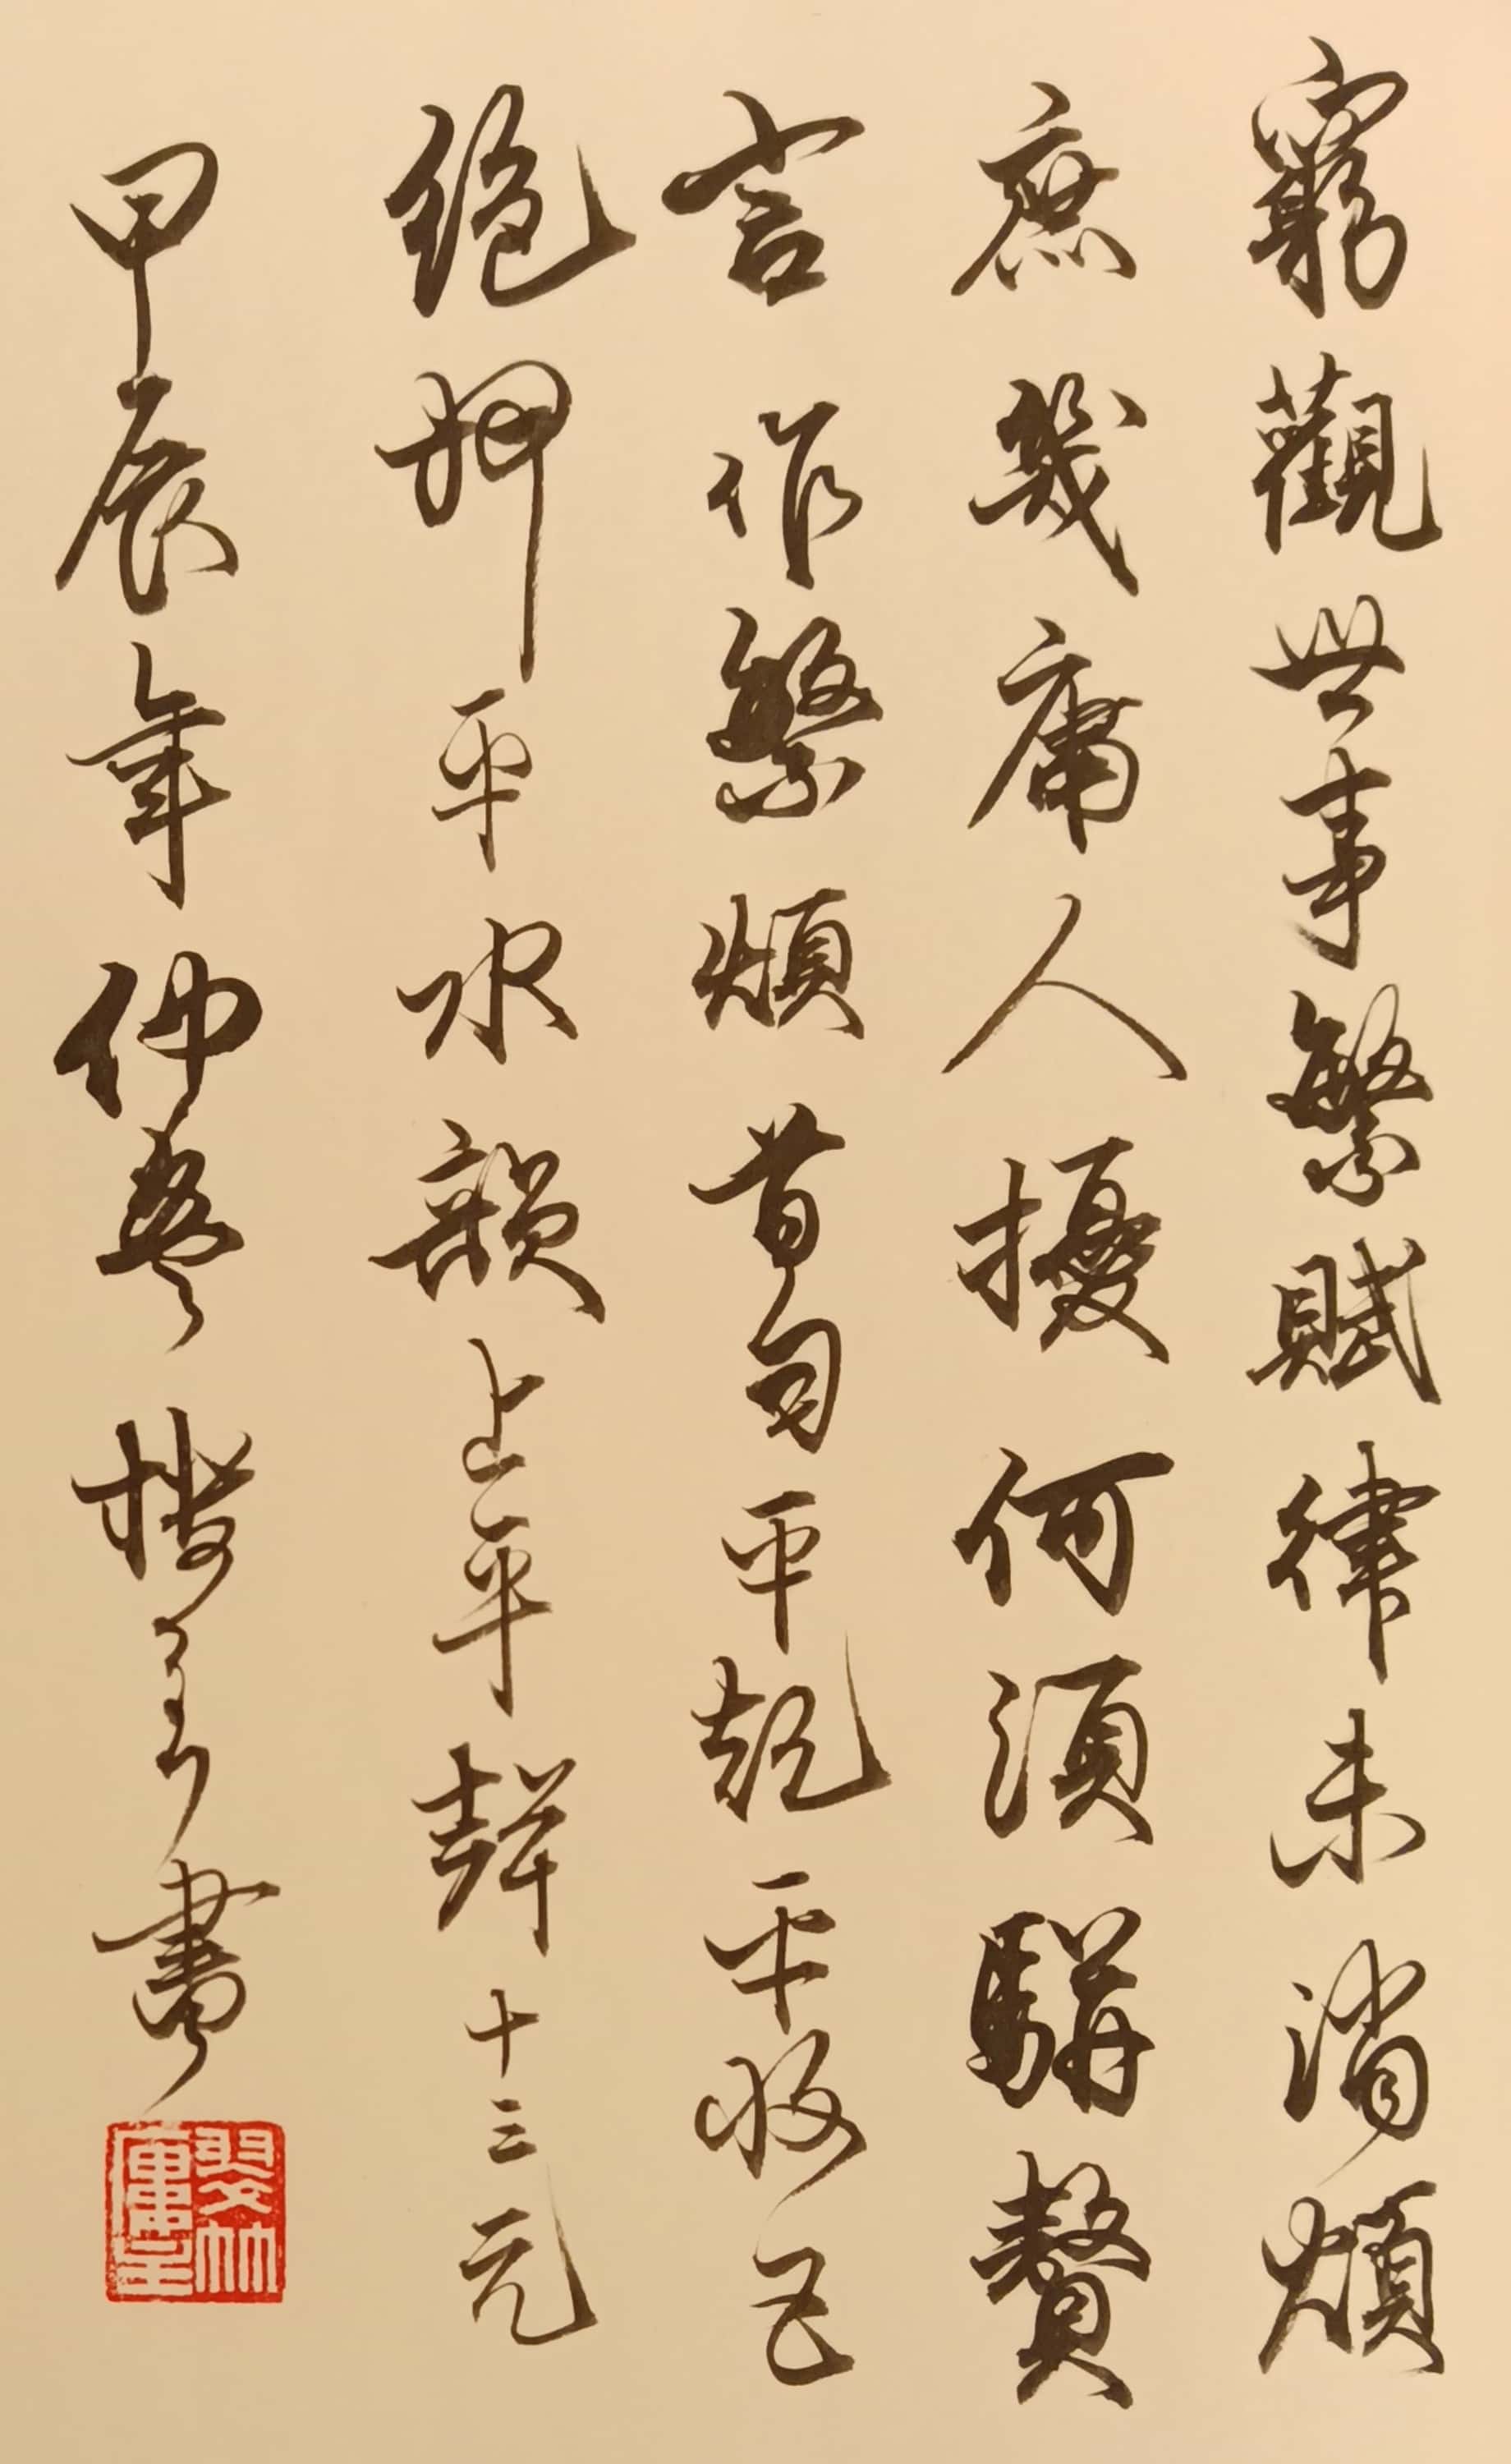 窮觀世事繁賦律未消煩
庶幾庸人擾何須駢贅
言作繁煩首句平起平收五
絕押平水韻上平聲十三元
甲辰年仲書